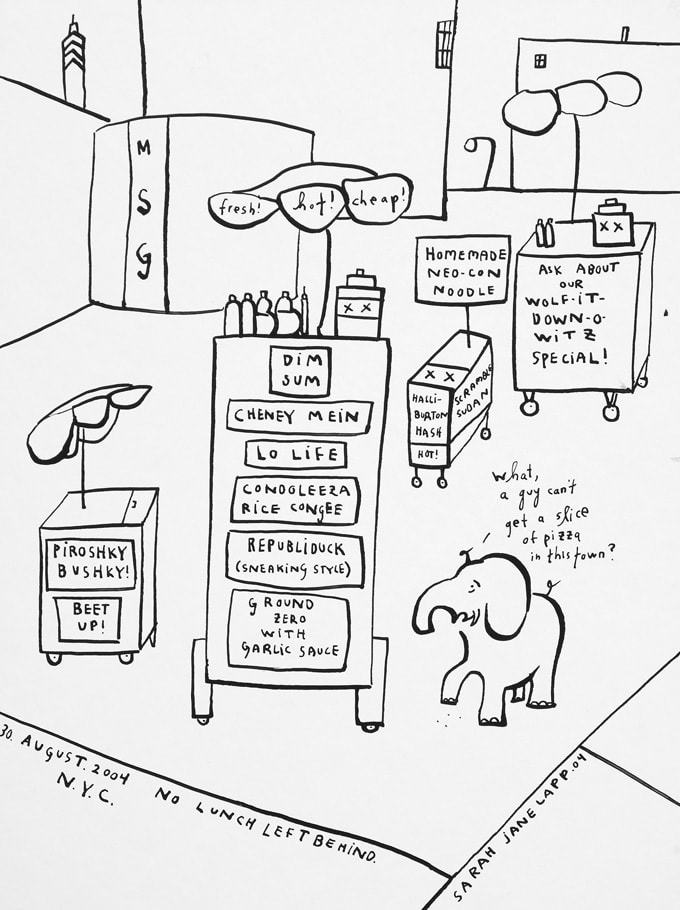 M
S
G
fresh! hot! cheap!
HOMEMADE
NEO-CON
NOODLE
ASK ABOUT
OUR
WOLF-IT-
DOWN-O-
WITZ
SPECIAL!
DIM
SUM
CHENEY MEIN
LO LIFE
CONDOLEEZA
RICE CONGEE
REPUBLIDUCK
(SNEAKING STYLE)
GROUND
ZERO
WITH
GARLIC SAUCE
XX
XX
XX
HALLI-
BURTON
HASH
HOT!
SCRAMBLE
SUDAN
PIROSHKY
BUSHKY!
BEET
UP!
What,
a guy can't
get a slice
of pizza
in this town?
30. AUGUST. 2004
N.Y.C.
NO LUNCH LEFT BEHIND.
SARAH JANE LAPP.04